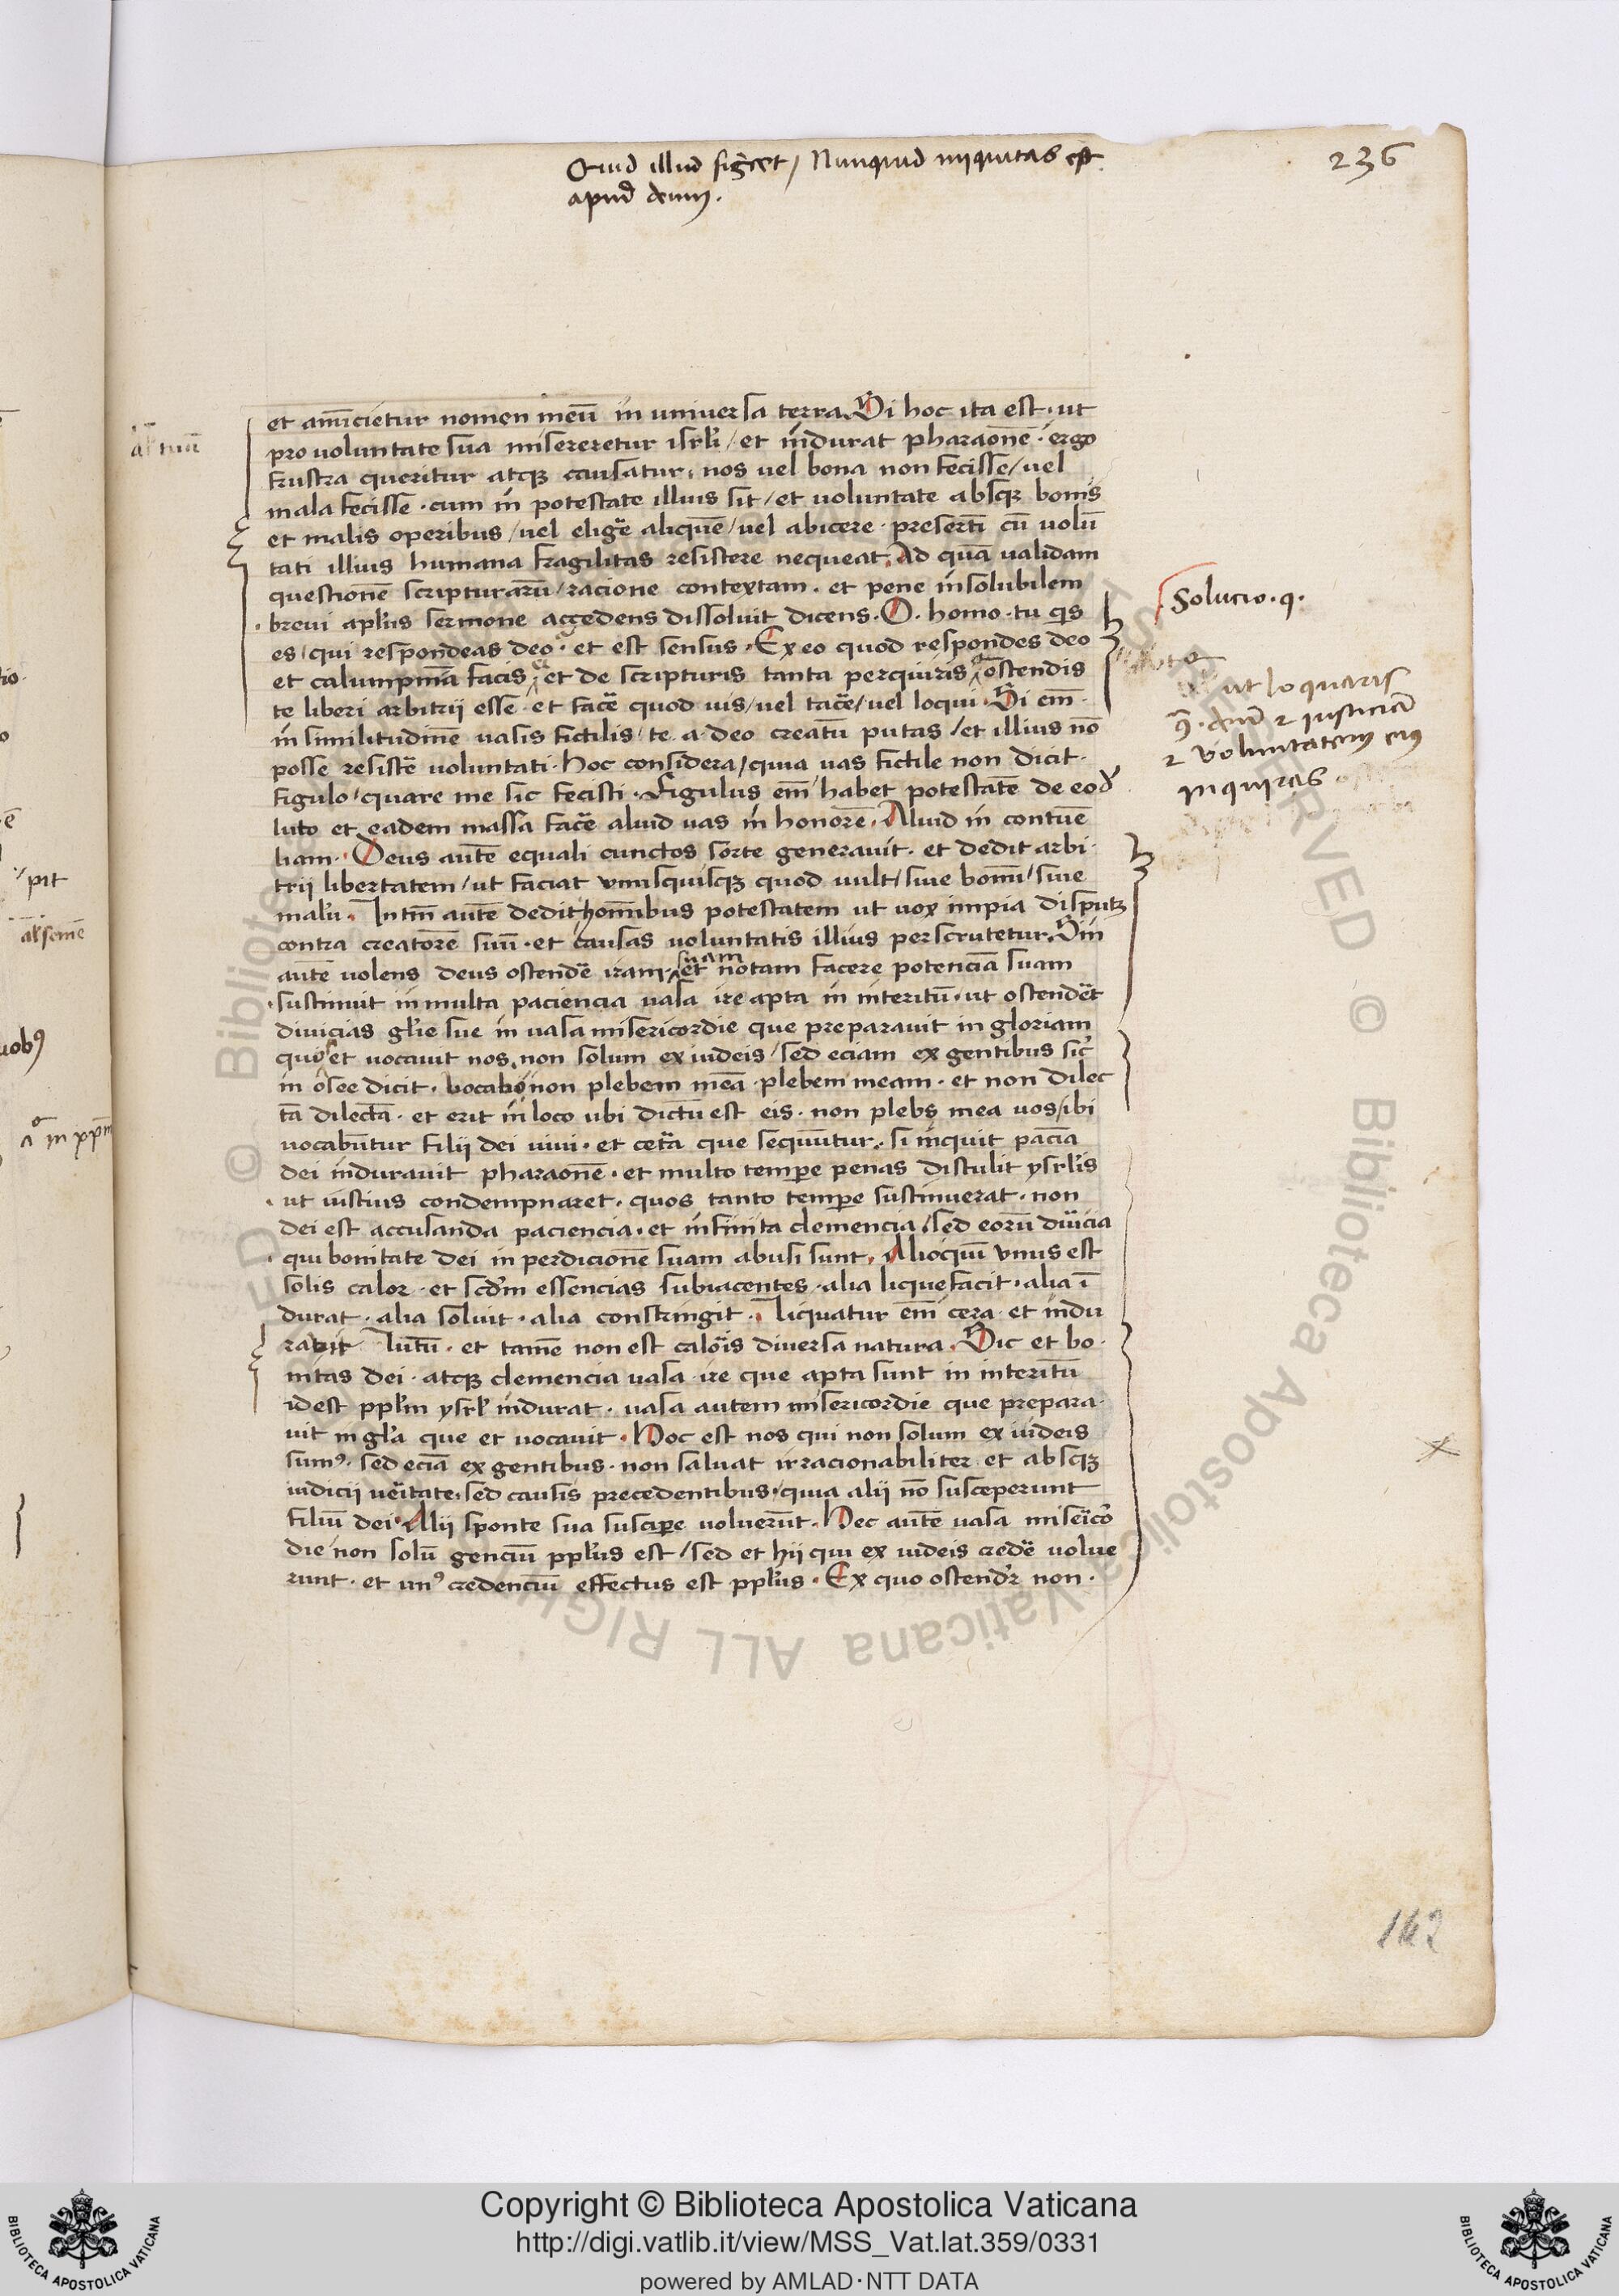 Quid illud sigͨcet / Nunquid iniquitas est
apud deum.
236
al' tuū
et anūcietur nomen meū in universa terra. Si hoc ita est · ut
pro voluntate sua misereretur isrl' / et indurat pharaonē · ergo
frustra queritur atqꝫ causatur, nos vel bona non fecisse / vel
mala fecisse · cum in potestate illius sit / et voluntate absqꝫ bonis
et malis operibus / vel eligē̃ aliquē / vel abicere · presertī cū volū
tati illius humana fragilitas resistere nequeat. Ad quā validam
questionē scripturarū / racione contextam · et pene insolubilem
brevi apl'us sermone accedens dissolvit dicens · O · homo · tu qis
es / qui respondeas deo · et est sensus · Ex eo quod respondes deo
et calumpniā facis et de scripturis tanta perquiris ostendis
te liberi arbitrii esse · et facē̃ quod vis / vel tacē̃ / vel loqui · Si em̄ ·
in similitudinē vasis fictilis / te a deo creatū putas / et illius nō
posse resistē̃ voluntati · hoc considera / quia vas fictile non dicit ·
figulo / quare me sic fecisti · Figulus em̄ habet potestatē de eod'
luto et eadem massa facē̃ aliud vas in honorē. Aliud in contūe
liam. Deus autē equali cunctos sorte generavit · et dedit arbi ·
trii libertatem / ut faciat unusquisqꝫ quod vult / sive bonū / sive
malū. In tm̄ autē dedit omībus potestatem ut vox impia disputꝫ
contra creatorē suū · et causas voluntatis illius perscrutetur. Sin
autē volens deus ostendē̃ iram suam et notam facere potenciā suam
sustinuit in multa paciencia vasa ire apta in interitū · ut ostendēt
divicias gl'ie sue in vasa misericordie que preparavit in gloriam
quos et vocavit nos, non solum ex iudeis / sed eciam ex gentibus sic'
in osee dicit · vocabo non plebem meā · plebem meam · et non dilec
tā dilectā · et erit in loco ubi dictū est eis · non plebs mea vos / ibi
vocabūtur filii dei vivi · et cet̃a que sequūtur. si inquit pac̄ia
dei induravit pharaonē · et multo tempe penas distulit ysrl'is
ut iustius condempnaret · quos tanto tempe sustinuerat · non
dei est accusanda paciencia · et infinita clemencia / sed eorū duicia
qui bonitate dei in perdicionē suam abusi sunt. Alioquī unus est
solis calor · et scd'm essencias subiacentes · alia liquefacit · alia ī
durat · alia solvit · alia constringit. liquatur em̄ cera · et indu
rat lutū · et tamē non est calōis diversa natura. Sic et bo ·
nitas dei · atqꝫ clemencia vasa ire que apta sunt in interitū
idest ppl'm ysrl' indurat · vasa autem misericordie que prepara ·
vit in gl'a que et vocavit · Hoc est nos qui non solum ex iudeis
sumꝰ · sed eciā ex gentibus · non salvat irracionabiliter et absqꝫ
iudicii vēitate, sed causis precedentibus · quia alii nō susceperunt
filiū dei. Alii sponte sua suscipe voluerūt. Hec autē vasa misēico'
die non solū genciū ppl'us est / sed et hii qui ex iudeis credē̃ volue
runt · et unꝰ credenciū effectus est ppl'us · Ex quo ostend'r non ·
Solucio · q ·
ut loquaris
ꝯ · deū ⁊ iusticiā
⁊ voluntatem eiꝰ
inquiras
142
pit
al' semē
vobꝰ
Copyright © Biblioteca Apostolica Vaticana
http://digi.vatlib.it/view/MSS_Vat.lat.359/0331
powered by AMLAD·NTT DATA
BIBLIOTECA APOSTOLICA VATICANA
BIBLIOTECA APOSTOLICA VATICANA